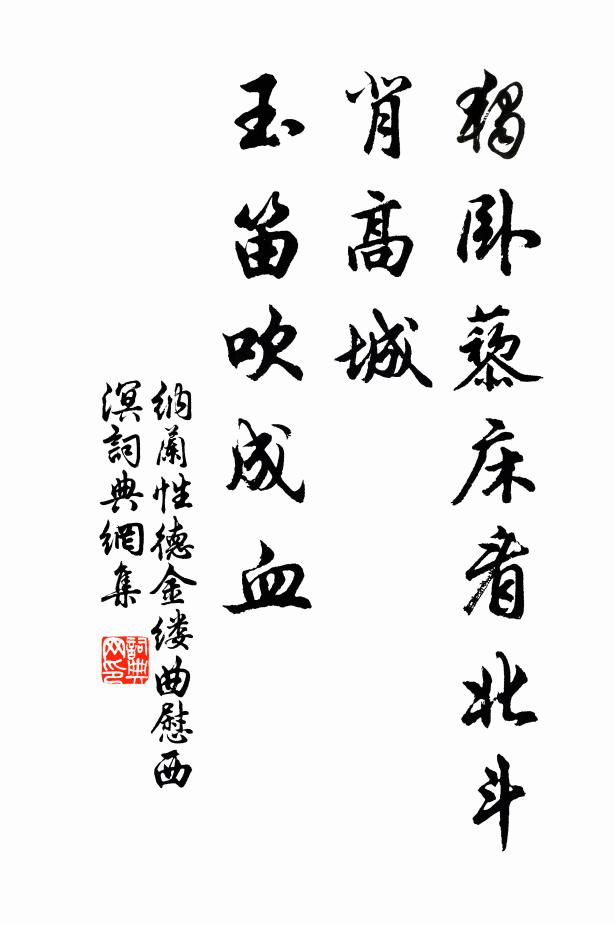 獨卧藜床看北斗
背高城
玉笛吹成血
納蘭性德金缕曲慰西
溟詞典網集
詞典
网印